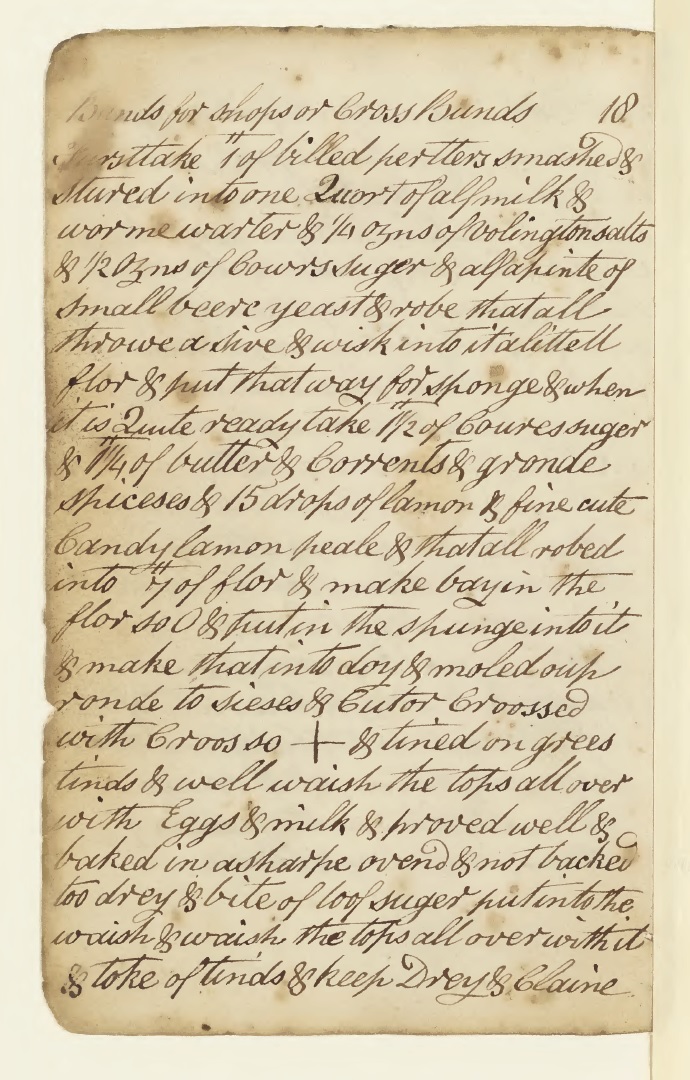 Bunds for shops or Cross Bunds 18
Fursttake 1 of billed pertters smashed &
stured into one Quort of alf milk &
worme warter & 1/4 ozns of volington salts
& 1/2 Ozns of Cowrs suger & alfa pinte of
small beere yeast & robe that all
throwe a sive & wisk into it a littell
flor & put that way for sponge & when
it is Quite ready take 1 1/2 of Coures suger
& 1 1/4 of butter & Corrents & gronde
spiceses & 15 drops of lamon & fine cute
Candy lamon peale & that all robed
into 7 of flor & make bay in the
flor so O & put in the spunge into it
& make that into doy & moled oup
ronde to sieses & Cutor Croossed
with Croos so + & tined on grees
tinds & well waish the tops all over
with Eggs & milk & proved well &
baked in a sharpe ovend & not backed
too drey & bite of loof suger put into the
waish & waish the tops all over with it
& toke of tinds & keep Drey & Claine